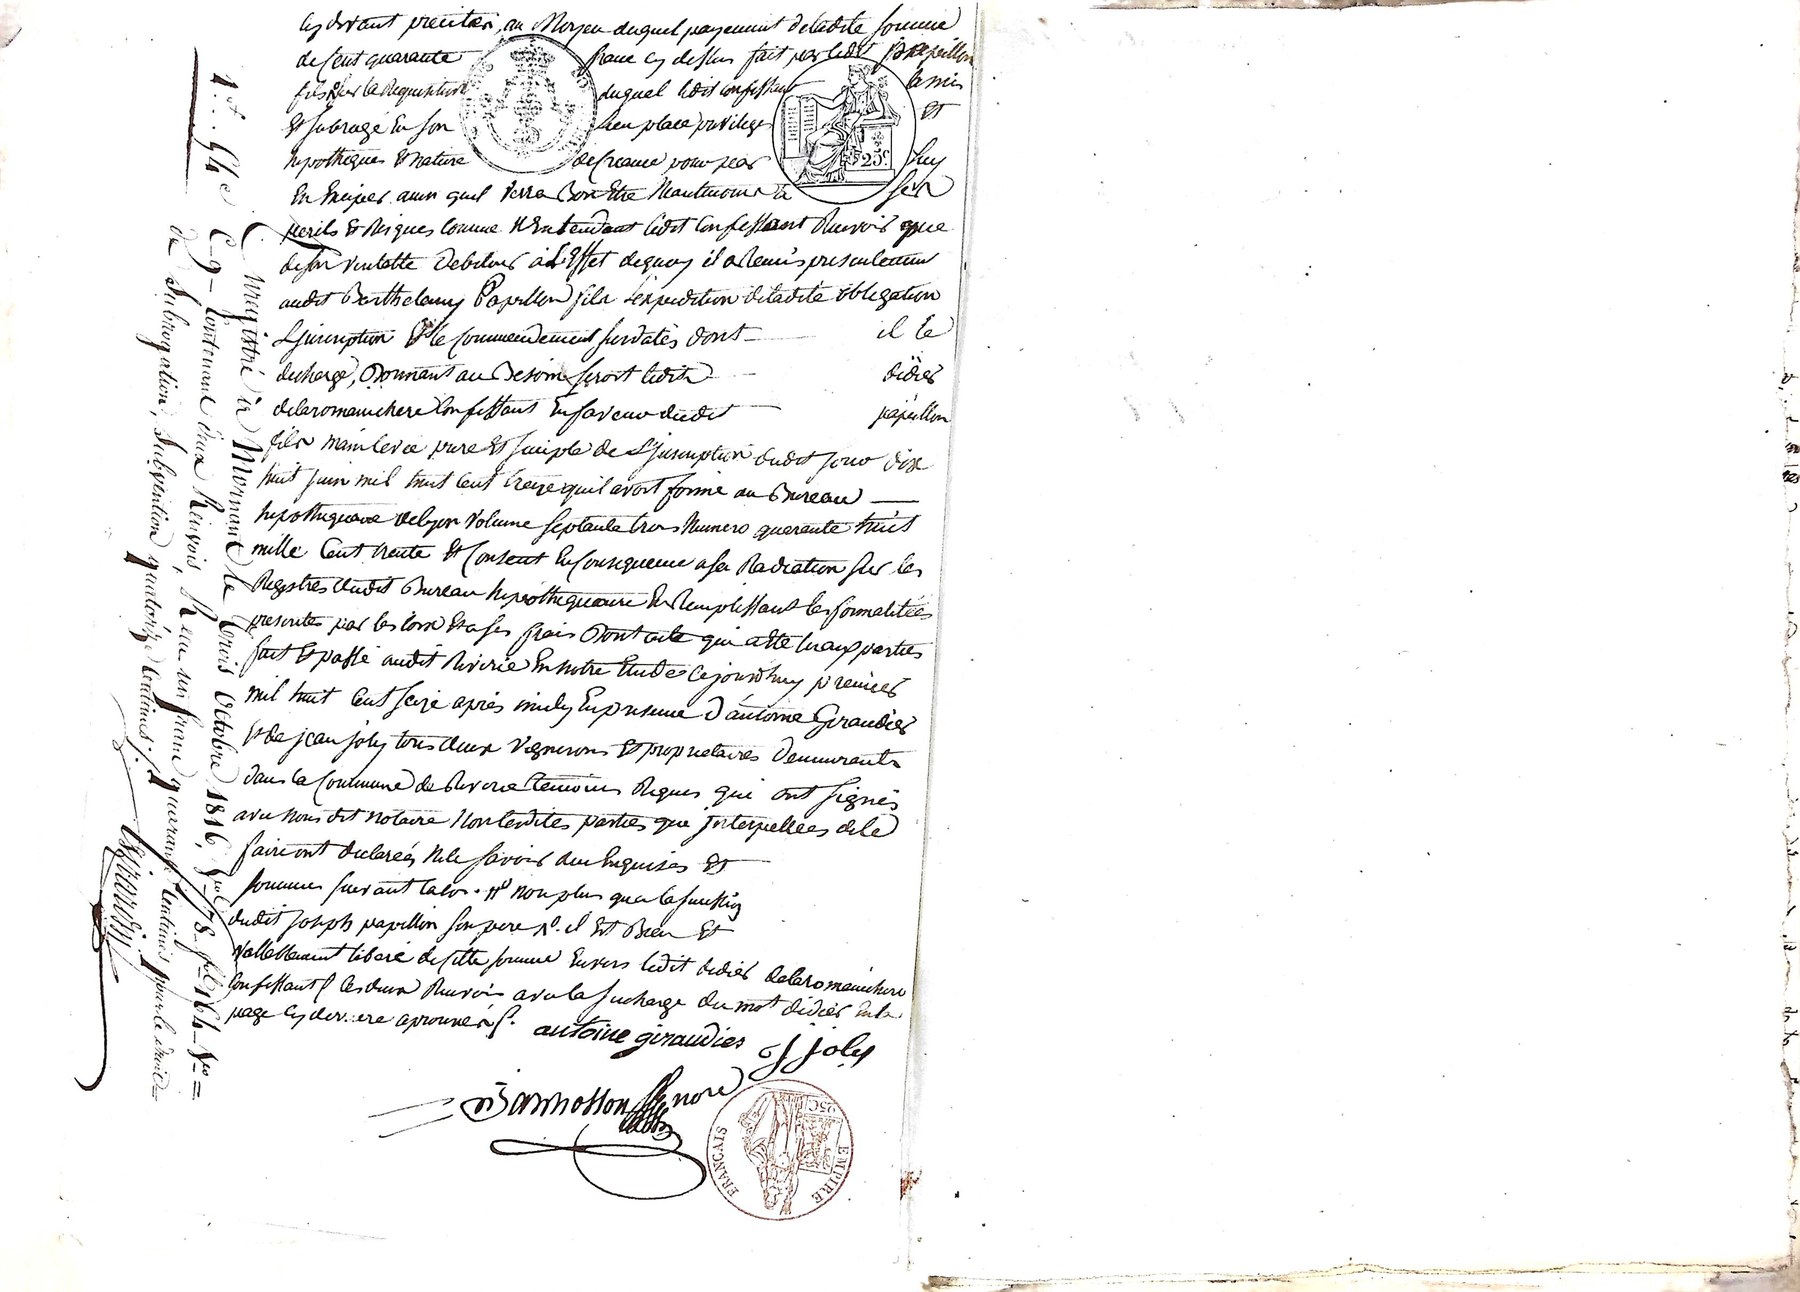 cy devant precitée, au Moyen duquel payement deladite somme
de Cent quarante franc cy dessus fait par ledit papillon
fils Sur la Requisition duquel ledit confessant la mis
Et subrogé En son lieu place privilege Et
hypotheques Et nature de Creance pour par luy
En Exciper ainsi quil Verra Bon Etre Neantmoins à ses
perils Et Risques comme N'Entendant ledit Confessant Recevoir que
de son Veritable Debiteur à L'Effet dequoy il a Remis presentement
audit Barthelemy Papillon fils L'expedition deladite obligation
L'Inscription Et le Commendement susdatés dont il le
decharge, Donnant au Besoin ledit didier
delaromanchere Confessant En faveur dudit papillon
fils main levée pure Et simple de L'Inscription dudit jour dix
huit juin mil huit Cent treize quil avoit formé au Bureau
hypothequaire de Lyon Volume septante trois Numero quarante huit
mille Cent trente Et Consent En Consequence a sa Radiation sur les
Registres dudit Bureau hypothequaire En Remplissant les formalitées
prescrites par les loix Et a ses frais Dont acte qui a Eté lu aux parties
fait Et passé audit Riverie En notre Etude Cejourdhuy premier
mil huit Cent seize après midy En presence D'antoine Giraudier
Et de jean joly tous deux Vignerons Et proprietaires demeurants
dans la Commune de Riverie temoins Requis qui ont signés
avec nous dit notaire Non lesdites parties que Interpellées de le
faire ont declarées Ne le savoir deue Enquises Et
sommées suivant la loi. non plus que la succession
dudit joseph papillon son pere il Est Bien Et
Vallablement liberé de cette somme Envers ledit didier delaromanchere
Confessant les deux Renvois avec la surcharge du mot didier en la
page cy derriere aprouvés
antoine giraudier
J joly
nore
EMPIRE FRANÇAIS
25C
25c
Enregistré à Mornant le trois Octobre 1816, f° 78 164 V°
1er. 54 C. 9 Contenant deux Renvois, Reçu un franc quarante centimes pour le droit
de Subrogation, Subvention quatorze Centimes.